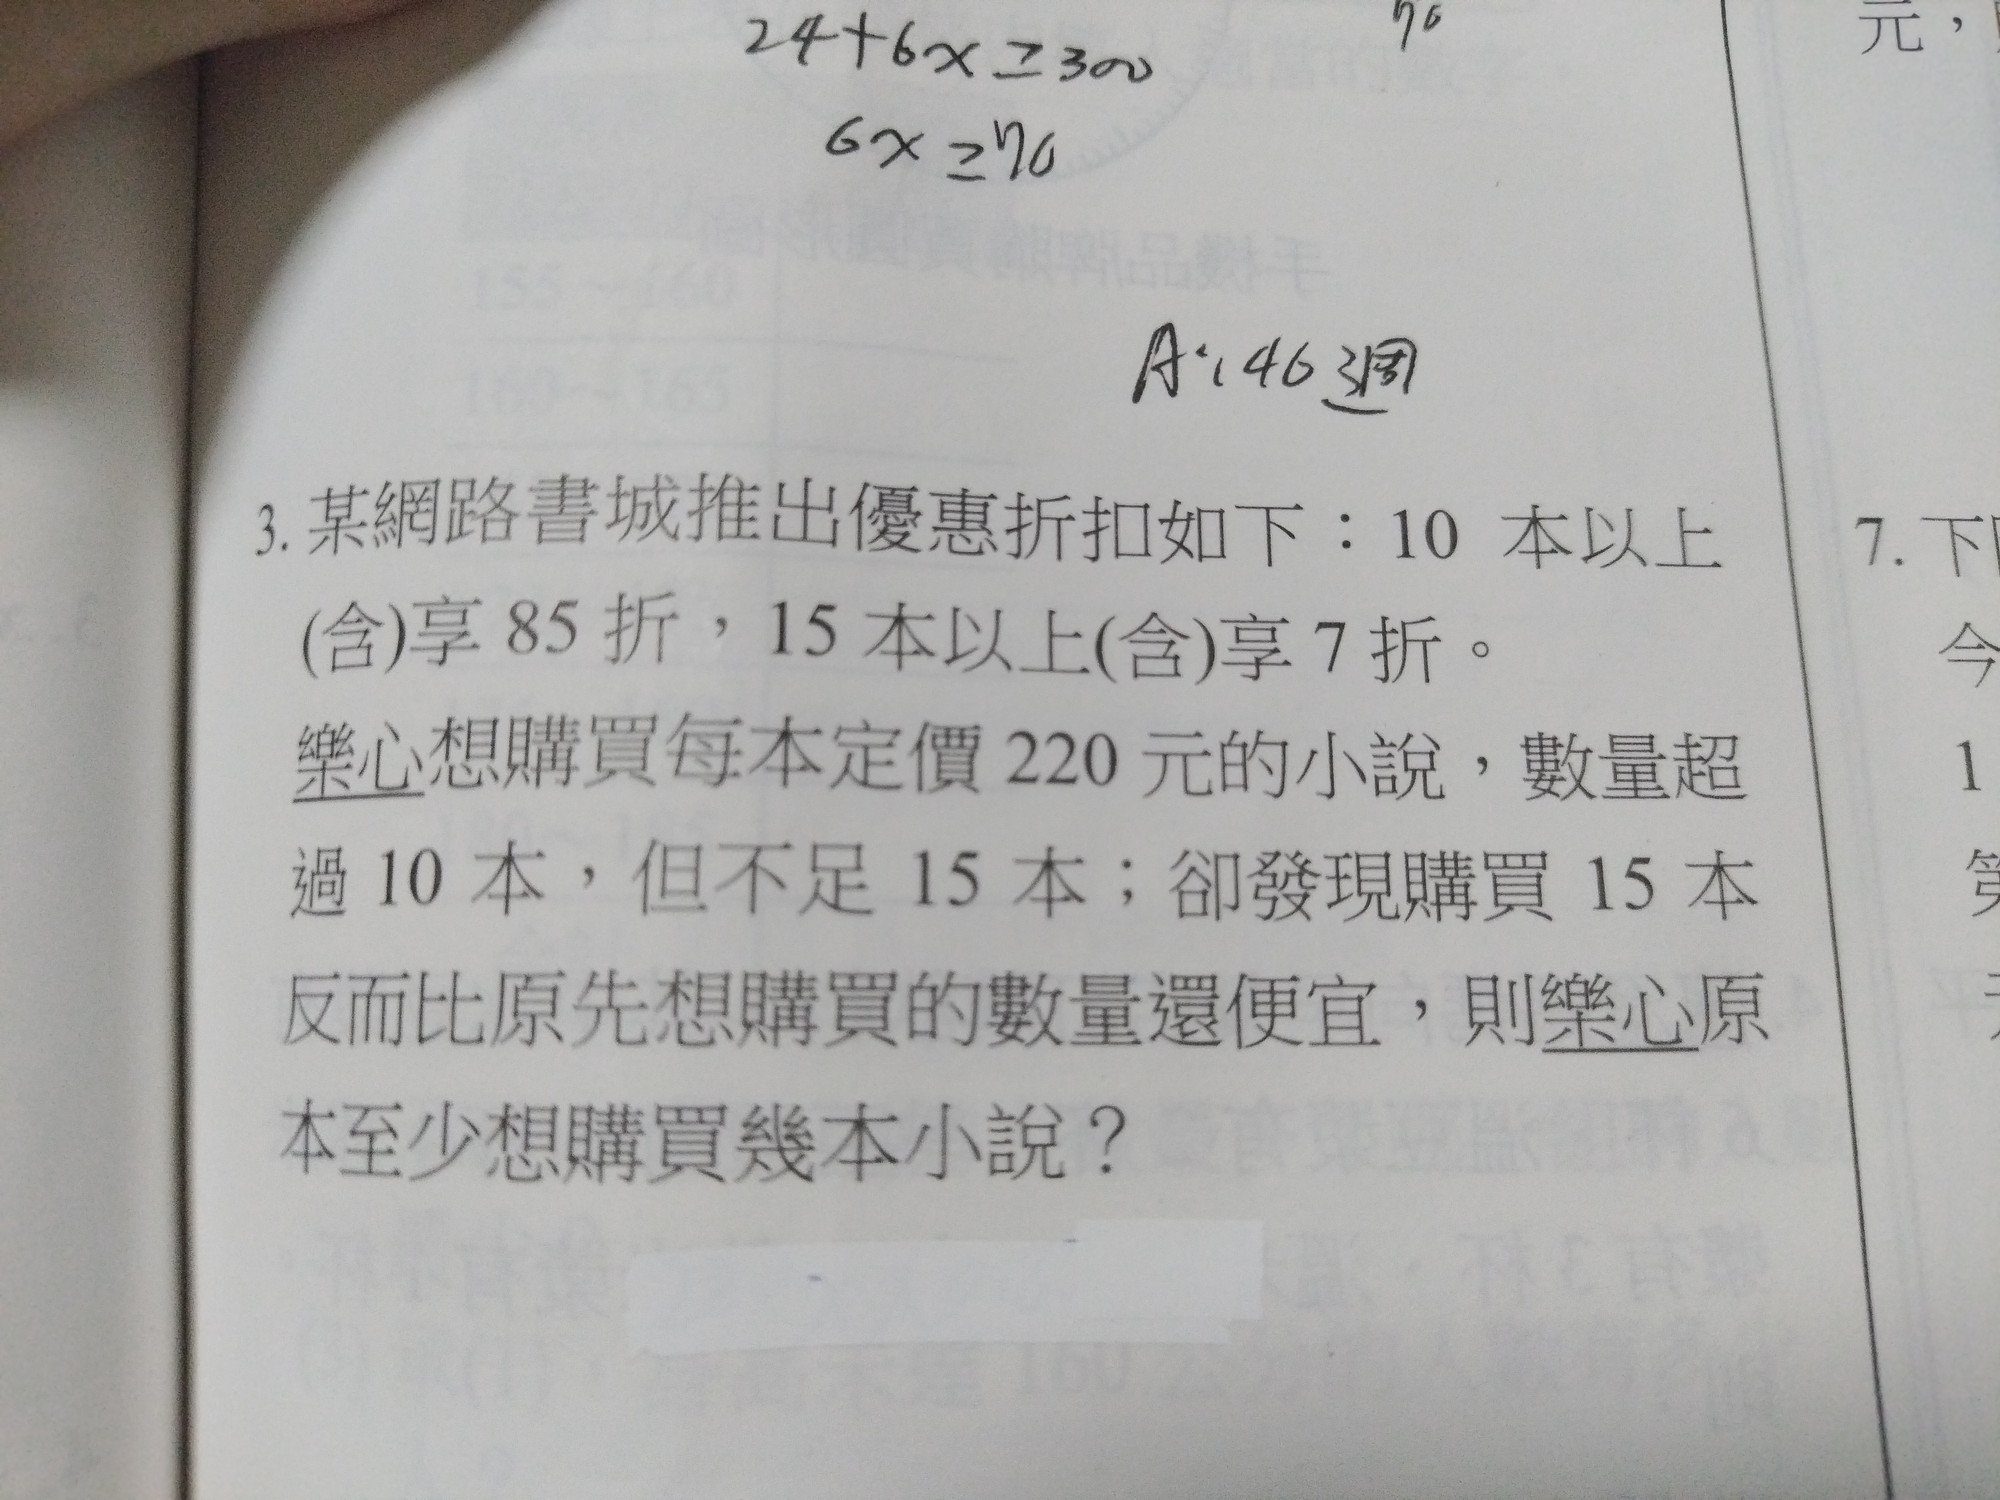 24+6x≥300
70
6x≥70
A:46週
3. 某網路書城推出優惠折扣如下：10 本以上
(含)享 85 折，15 本以上(含)享 7 折。
樂心想購買每本定價 220 元的小說，數量超
過 10 本，但不足 15 本；卻發現購買 15 本
反而比原先想購買的數量還便宜，則樂心原
本至少想購買幾本小說？
元，
7. 下
今
1
第